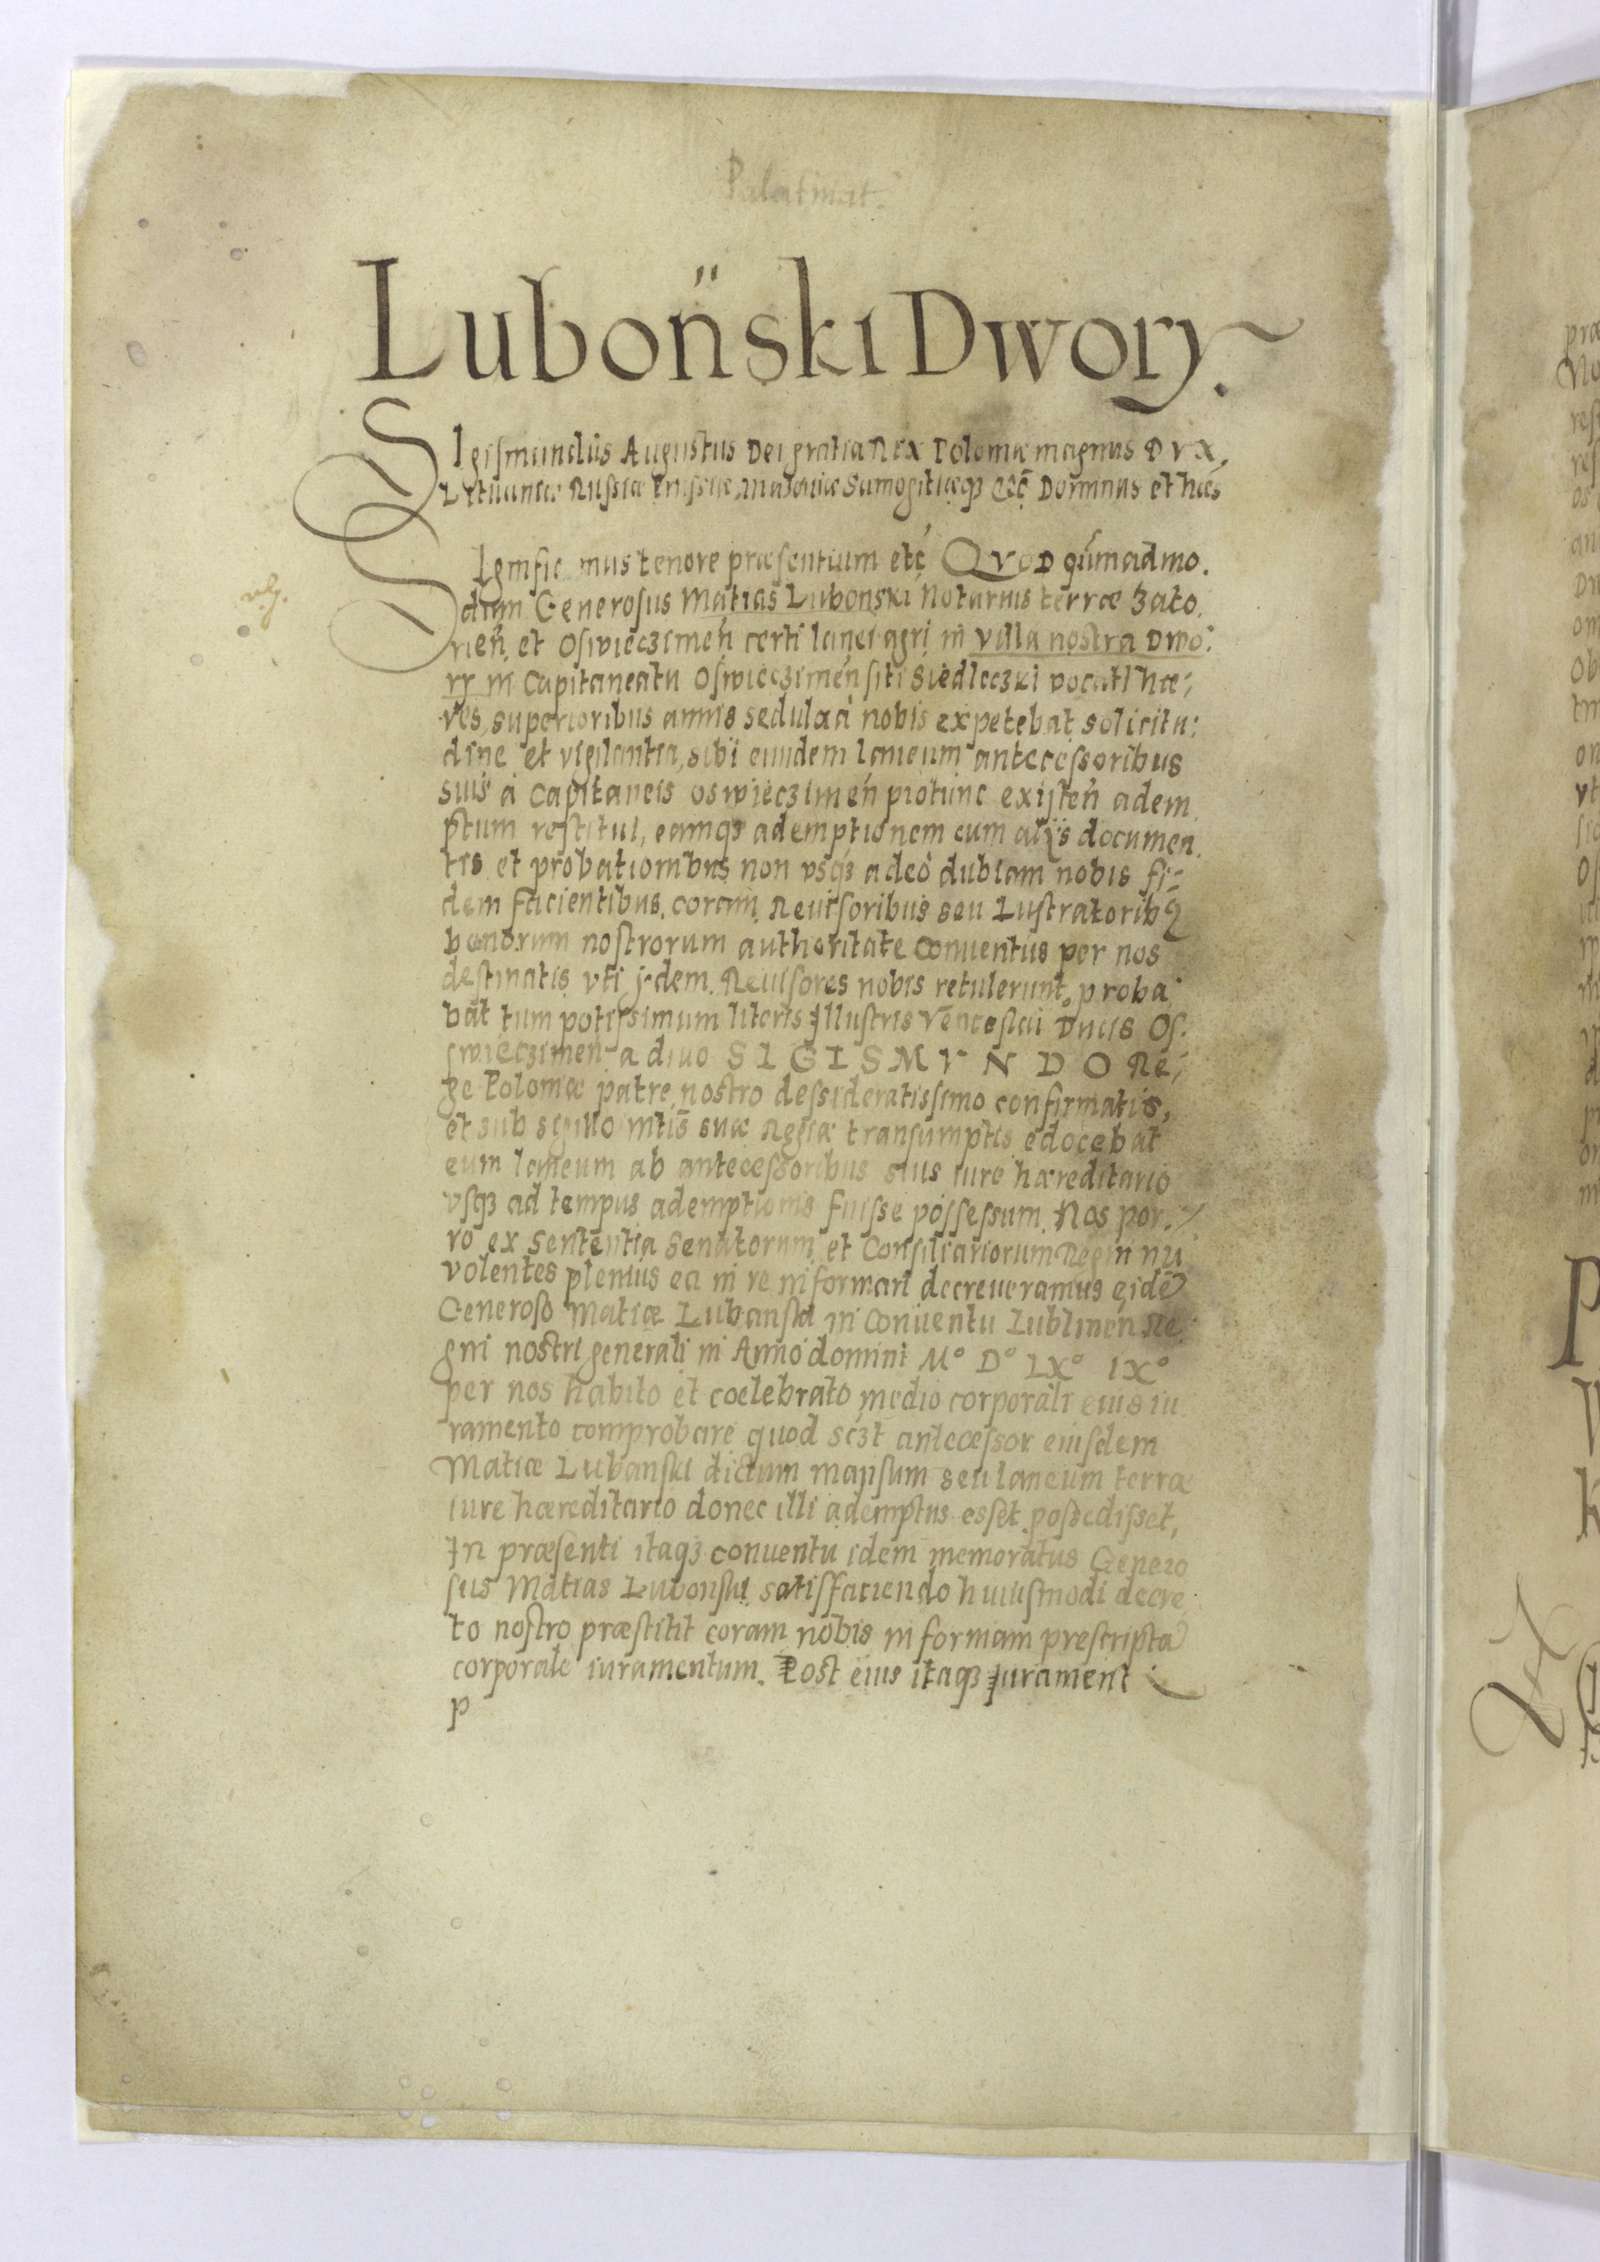 Palatinat.
Luboński Dwory.
SIgismundus Augustus Dei gratia Rex Poloniæ magnus DVX,
Lituaniæ Russiæ Prussiæ masouiæ Samogitiæqȝ etc̄ Dominus et hæs
SIgnific mus tenore præsentium etc̄ QVOD qu̅madmo.
dum Generosus Matias Lubonski Notarius terræ Zato.
rien̄ et Oswieczimen̄ certi lanei agri in villa nostra Dwo:
ry in Capitaneatu Oswieczimen̄ siti Siedleczki vocati hæ;
res, superioribus annis sedula à nobis expetebat solicitu:
dine et vigilantia, sibi eundem laneum antecessoribus
suis à Capitaneis oswieczimen̄ protunc existen̄ adem
ptum restitui, eamqȝ ademptionem cum alijs documen.
tis et probationibus non vsqȝ adeò dubiam nobis fi=
dem facientibus, coram Reuisoribus seu Lustratoribꝫ
bonorum nostrorum authoritate conuentus per nos
destinatis vti ij-dem Reuisores nobis retulerunt, proba
bat tum potissimum literis Illustris Venceslai Ducis Os.
swieczimen̄ a diuo SIGISMVNDO Re;
ge Poloniæ patre nostro dessideratissimo confirmatis,
et sub sigillo mtis̄ suæ Regiæ transumptis edocebat
eum laneum ab antecessoribus suis iure hæreditario
vsqȝ ad tempus ademptionis fuisse possessum. Nos por.
ro ex sententia Senatorum et Consiliariorum Regni nri̅
volentes plenius ea in re informari decreueramus eidē
Generoso Matiæ Lubanski in Conuentu Lublinen̄ Re
gni nostri generali in Anno domini M° D° LX° IX°
per nos habito et coelebrato medio corporali eius iu
ramento comprobare quod scȝt antecessor eiusdem
Matiæ Lubanski dictum mansum seu laneum terræ
iure hæreditario donec illi ademptus esset possedisset,
In præsenti itaqȝ conuentu idem memoratus Genero
sus Matias Lubonski satisfaciendo huiusmodi decre
to nostro præstitit coram nobis in formam prescripta
corporale iuramentum. Post eius itaqȝ jurament
p